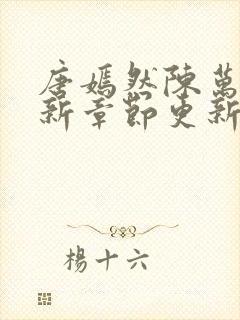 唐嫣然陳萬
新章節更新
楊十六